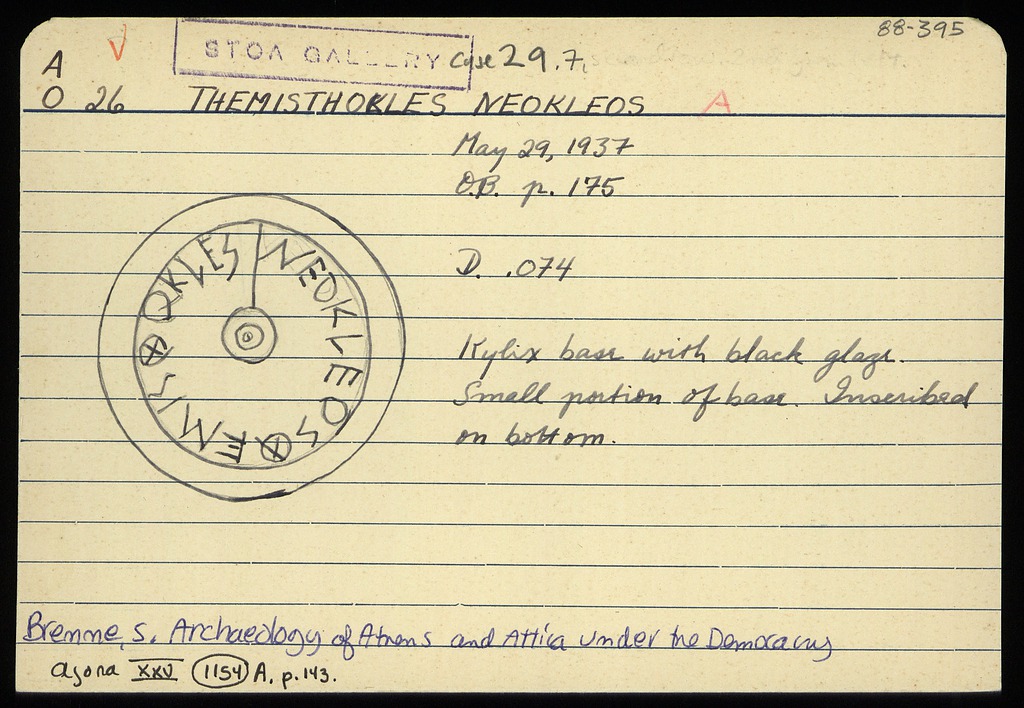 88-395
V STOA GALLERY Case 29.7,
A
O 26 THEMISTHOKLES NEOKLEOS A
May 29, 1937
O.B. p. 175
D. .074
NEOKLEOS ⊗EMIS⊗OKLES
Kylix base with black glaze.
Small portion of base. Inscribed
on bottom.
Bremme, S. Archaeology of Athens and Attica under the Democracy
Agora XXV 1154 A, p. 143.